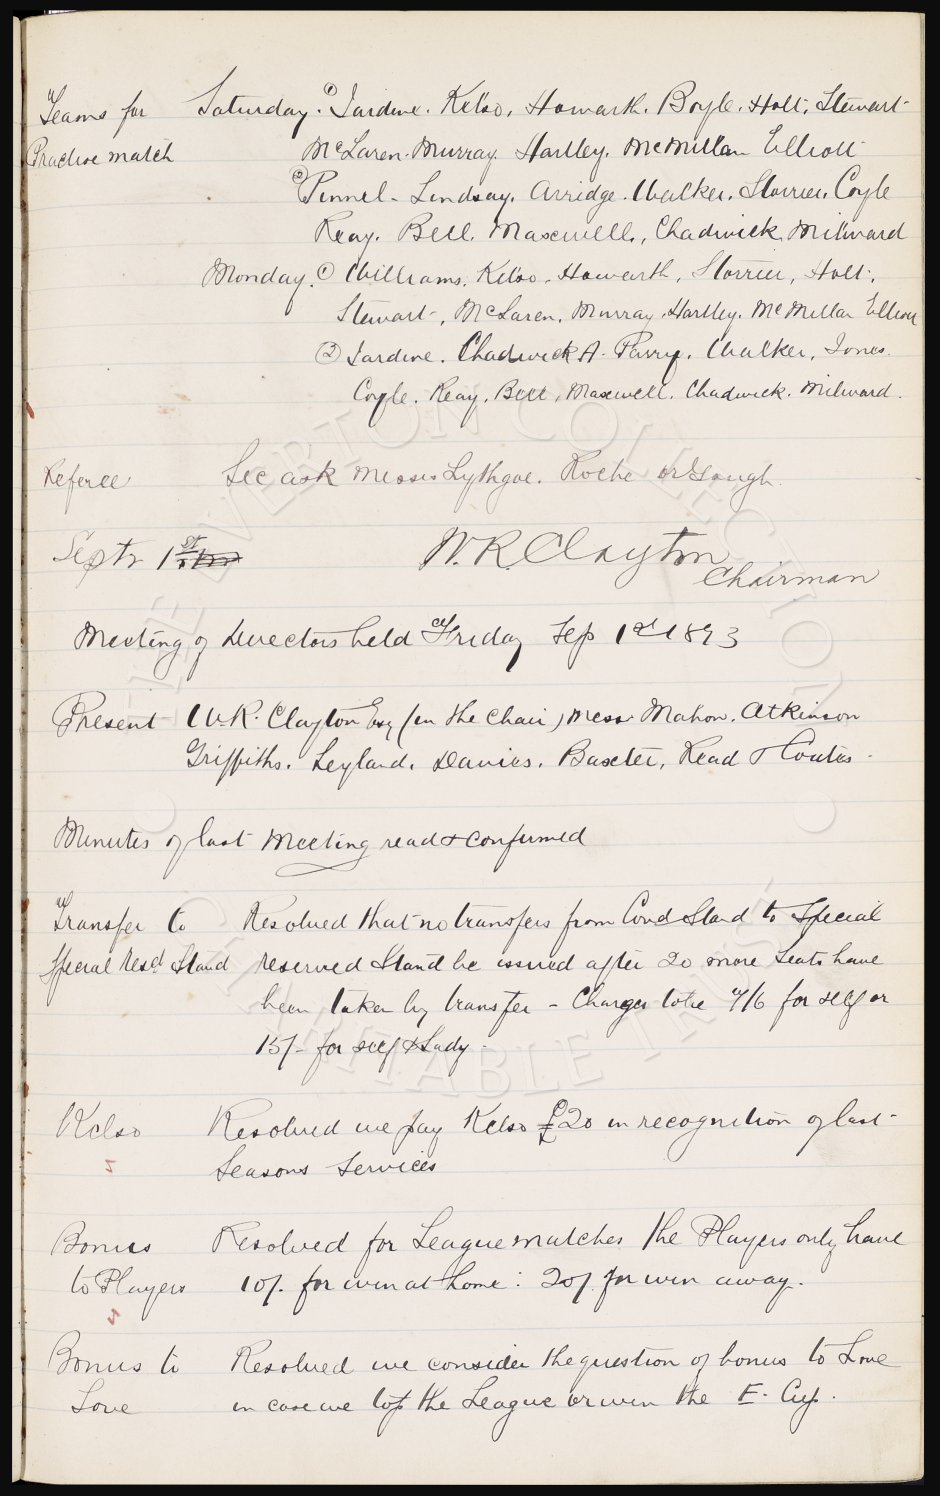 Teams for Saturday. (1) Jardine. Kelso, Howarth. Boyle. Holt. Stewart
Practice match McLaren. Murray. Hartley. McMillan Elliott
(2) Pinnel. Lindsay. Arridge. Walker. Storrier. Coyle
Reay. Bell. Maxwell., Chadwick. Milward
Monday. (1) Williams. Kelso. Howarth, Storrier, Holt.
Stewart, McLaren, Murray. Hartley. McMillan Elliott
(2) Jardine. Chadwick A. Parry. Walker, Jones.
Coyle. Reay. Bell, Maxwell. Chadwick. Milward.
Referee Sec ask Messrs Lythgoe. Roche or Gough.
Septr 1st W.R. Clayton
Chairman
Meeting of Directors held Friday Sep 1st 1893
Present W.R. Clayton Esq (in the chair) Messrs Mahon. Atkinson
Griffiths. Leyland. Davies. Baxter, Read & Coates.
Minutes of last Meeting read & confirmed
Transfer to Resolved that no transfers from Covd Stand to Special
Special Resd Stand reserved Stand be issued after 20 more Seats have
been taken by transfer - Charges to be 7/6 for self or
15/- for self & Lady.
Kelso Resolved we pay Kelso £20 in recognition of last
Seasons Services
Bonus Resolved for League matches the Players only have
to Players 10/. for win at home: 20/. for win away.
Bonus to Resolved we consider the question of bonus to Love
Love in case we top the League or win the E. Cup.
THE EVERTON COLLECTION
CHARITABLE TRUST